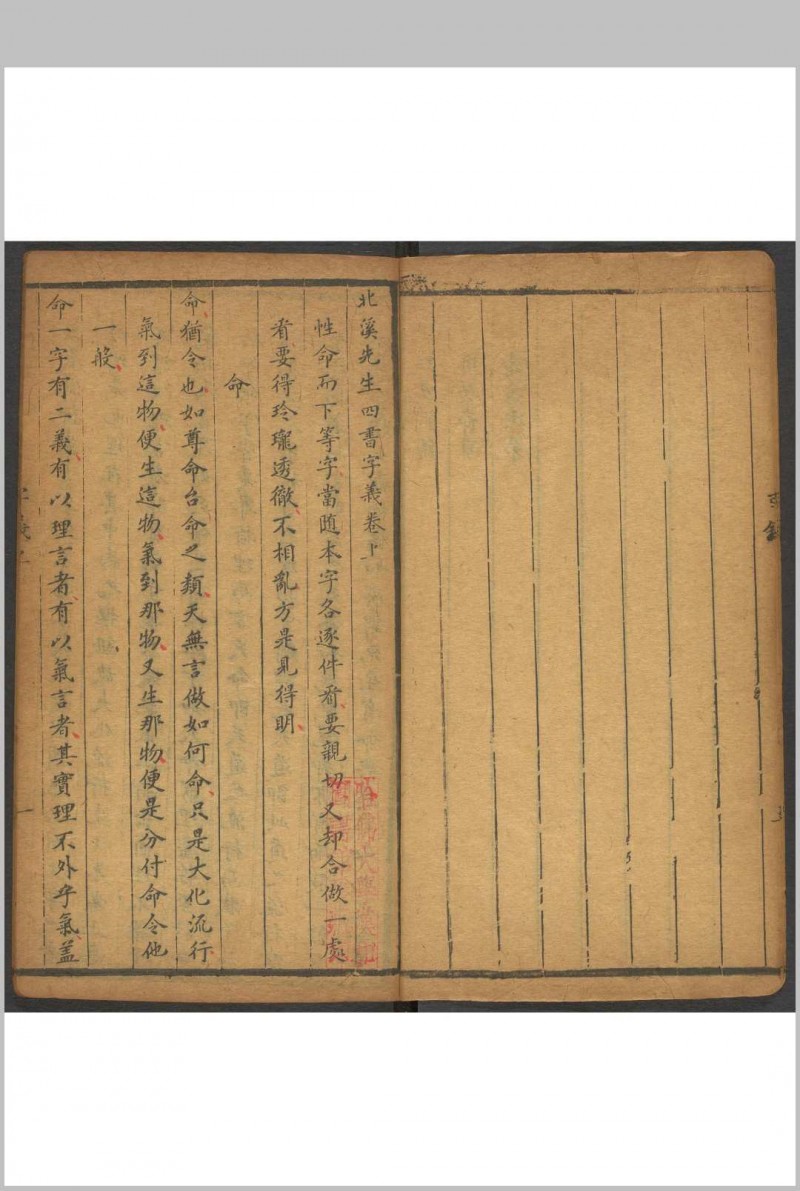 北溪先生四書字義卷上
性命而下等字當隨本字各逐件看要親切又却合做一處
看要得玲瓏透徹不相亂方是見得明
命
命猶令也如尊命台命之類天無言做如何命只是大化流行
氣到這物便生這物氣到那物又生那物便是分付命令他
一般
命一字有二義有以理言者有以氣言者其實理不外乎氣盖